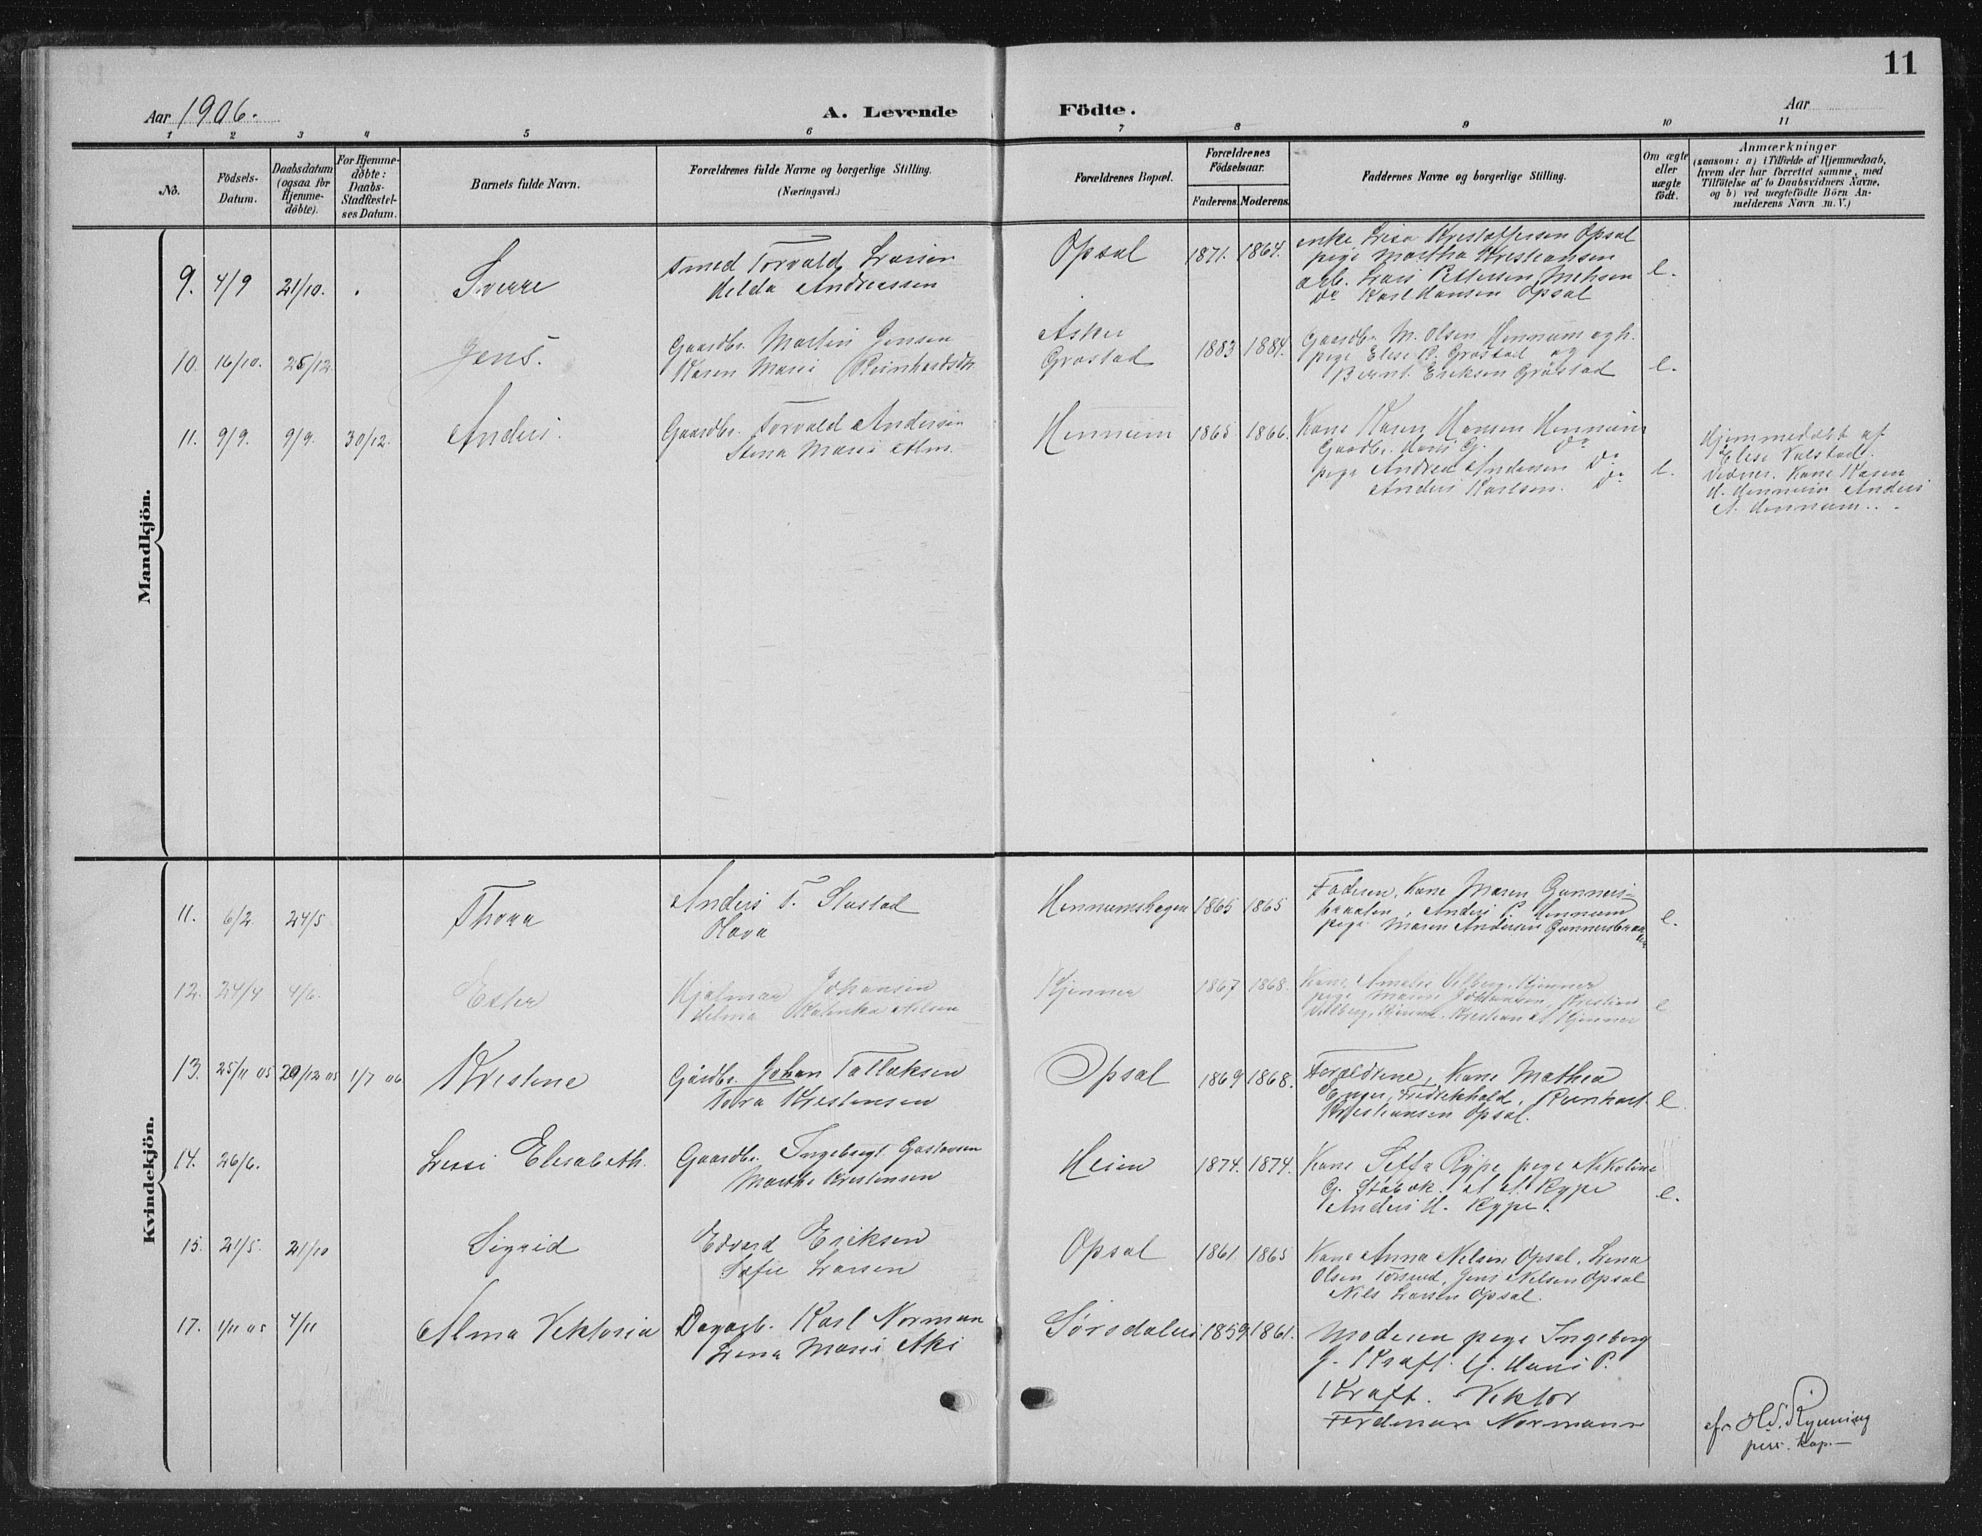 11
Aar 1906.
A. Levende Födte.
Aar
1 2 3 4 5 6 7 8 9 10 11
No.
Födsels-Datum.
Daabsdatum (ogsaa for Hjemme-döbte).
For Hjemme-döbte: Daabs-Stadfestel-ses Datum.
Barnets fulde Navn.
Forældrenes fulde Navne og borgerlige Stilling.
(Næringsvei.)
Forældrenes Bopæl.
Forældrenes Födselsaar.
Faderens. Moderens.
Faddernes Navne og borgerlige Stilling.
Om ægte eller uægte födt.
Anmærkninger
(saasom: a) i Tilfælde af Hjemmedaab,
hvem der har forrettet samme, med
Tilföielse af to Daabsvidners Navne,
og b) ved uægtefödte Börn An-
melderens Navn m. V.)
Mandkjön.
9. 4/9 21/10. Sverre
Smed Torvald Larsen
Helda Andreassen
Opsal 1871. 1864.
enke Lisa Kristoffersen Opsal
pige Martha Kristiansen
arb. Lars Pettersen
Do Karl Hansen Opsal
e.
10. 16/10. 25/12. Jens.
Gaardbr. Martin Jensen
Karen Marie Reinhardsdtr.
Asker
Grøstad
1883 1884.
Gaardbr. M. Olsen Hennum og h.
pige Elise B. Grøstad og
Bernt Eriksen Grøstad
e.
11. 9/9. 9/9. 30/12. Anders.
Gaardbr. Torvald Andersen
Stina Marie Alm.
Hennum 1865 1866.
Kone Karen Hansen Hennum
Gaardbr. Hans G. Do
pige Andrea Andersen Do
Anders Karlsen. Do
e.
Hjemmedøbt af
Elise Valstad.
Vidner. Kone Karen
H. Hennum Anders
A. Hennum..
Kvindekjön.
11. 6/2 24/5 Thora
Anders T. Slastad
Olava
Hennumshagen 1865 1865
Faderen, Kone Maren Gunners-
braaten, Anders P. Hennum
pige Maren Andersen Gunnersbraa
ten
e.
12. 24/4 4/6. Ester
Hjalmar Johansen
Helma Katinka Nilsen
Kjenner 1867 1868.
Kone Amalie Vilberg, Kjenner
pige Marie Johansen, Kristian
Vilberg, Kjenner, Kristian A. Kjenner
e
13. 25/11 05 29/12 05 1/7 06 Kristine
Gårdbr. Johan Tollaksen
Tora Kristensen
Opsal 1869 1868.
Forældrene, Kone Mathea
Enger, Fredrikhald. Reinhart
Kristiansen Opsal.
e.
14. 26/6. Lissi Elisabeth.
Gaardbr. Ingebregt Gustavsen
Marthe Kristensen
Heien 1874. 1874.
Kone Setta Rype, pige Nikoline
G. Støvok. A. A. Rype
Anders H. Rype.
e.
15. 21/5. 21/10 Sigrid
Edvard Eriksen
Sofie Larsen
Opsal 1861. 1865
Kone Anna Nilsen Opsal. Lena
Olsen Torsrud, Jens Nilsen Opsal
Nils Larsen Opsal.
17. 1/11 05 4/11 Alma Viktoria
Dagarb. Karl Norman
Lena Marie Aki
Sørsdalen 1859 1861.
Moderen pige Ingeborg
G. Kraft. G. Hans P.
Kraft. Viktor
Ferdinan Normann
Rynning
pers. kap.